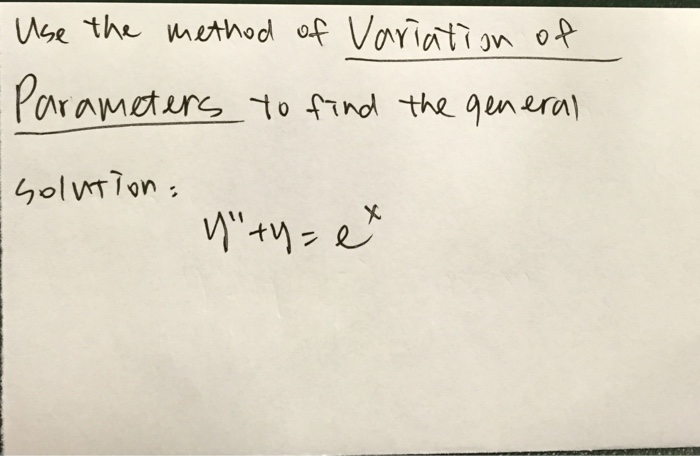 Use the method of Variation of
Parameters to find the general
solution:
y'' + y = e^x